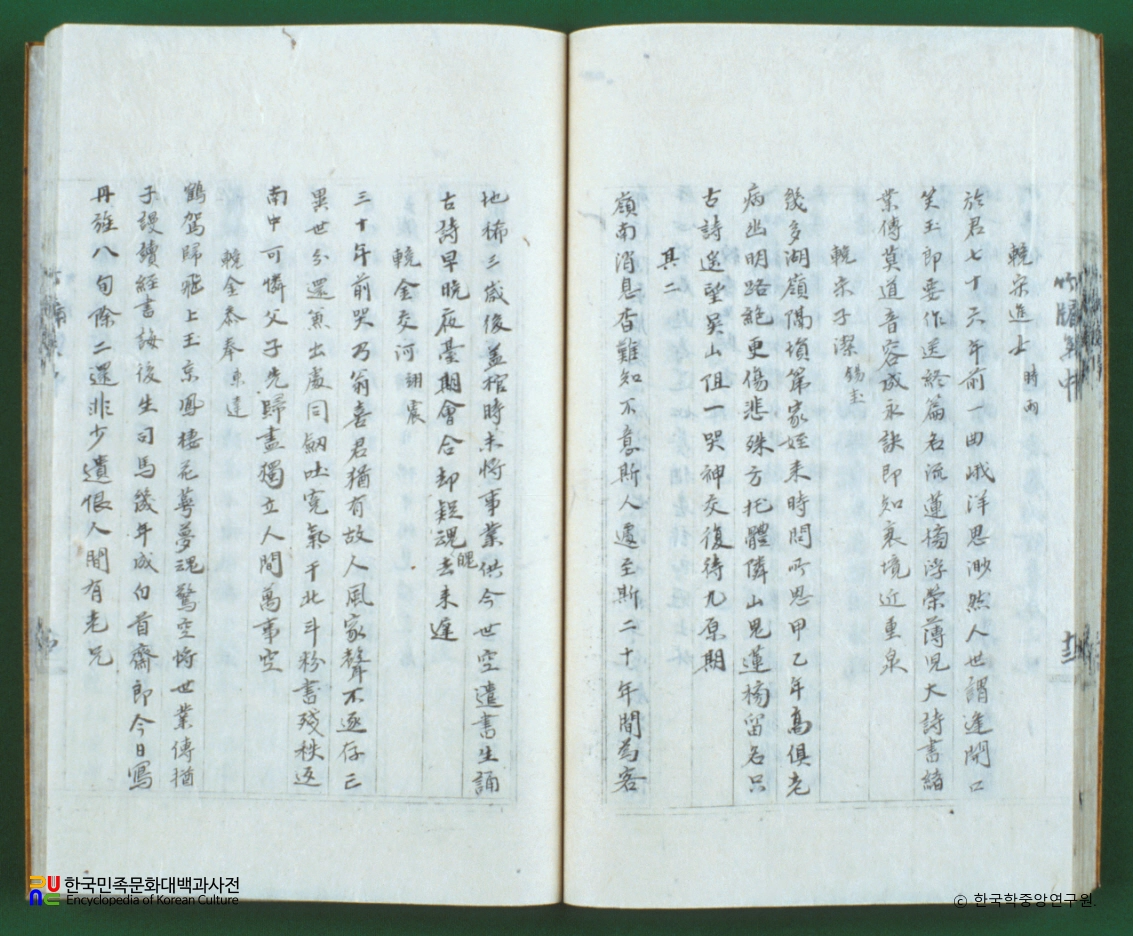 輓宋進士 時雨
於君七十六年前一曲峨洋思渺然人世謂逢開口
笑玉即要作送終篇名流蓮榜浮榮薄児大詩書緒
業傳莫道音容成永訣即知衰境近重泉
輓宋子潔 錫圭
幾多湖嶺傷塤篪家姪来時問所思甲乙年高俱老
病幽明路絶更傷悲殊方托體隣山児蓮榜留名只
古詩遙望巽山但一哭神交復待九原期
其二
嶺南消息杳難知不意斯人遽至斯二十年間為客
地稀三歲後蓋棺時未將事業供今世空遺書生誦
古詩早晩夜臺期會合却疑魂魄去来遲
輓金交河 翊震
三十年前哭乃翁喜君猶有故人風家聲不逐存亡
異世分還兼出處同劒吐寃氣干北斗粉書殘秩返
南中可憐父子先歸盡獨立人間萬事空
輓金叅奉 東達
鶴駕歸飛上玉京鳳棲花萼夢魂驚空將世業傳猶
子謾讀經書誨後生司馬幾年成白首齋郎今日寫
丹旌八旬除二還非少遺恨人間有老兄
한국민족문화대백과사전
Encyclopedia of Korean Culture
© 한국학중앙연구원.